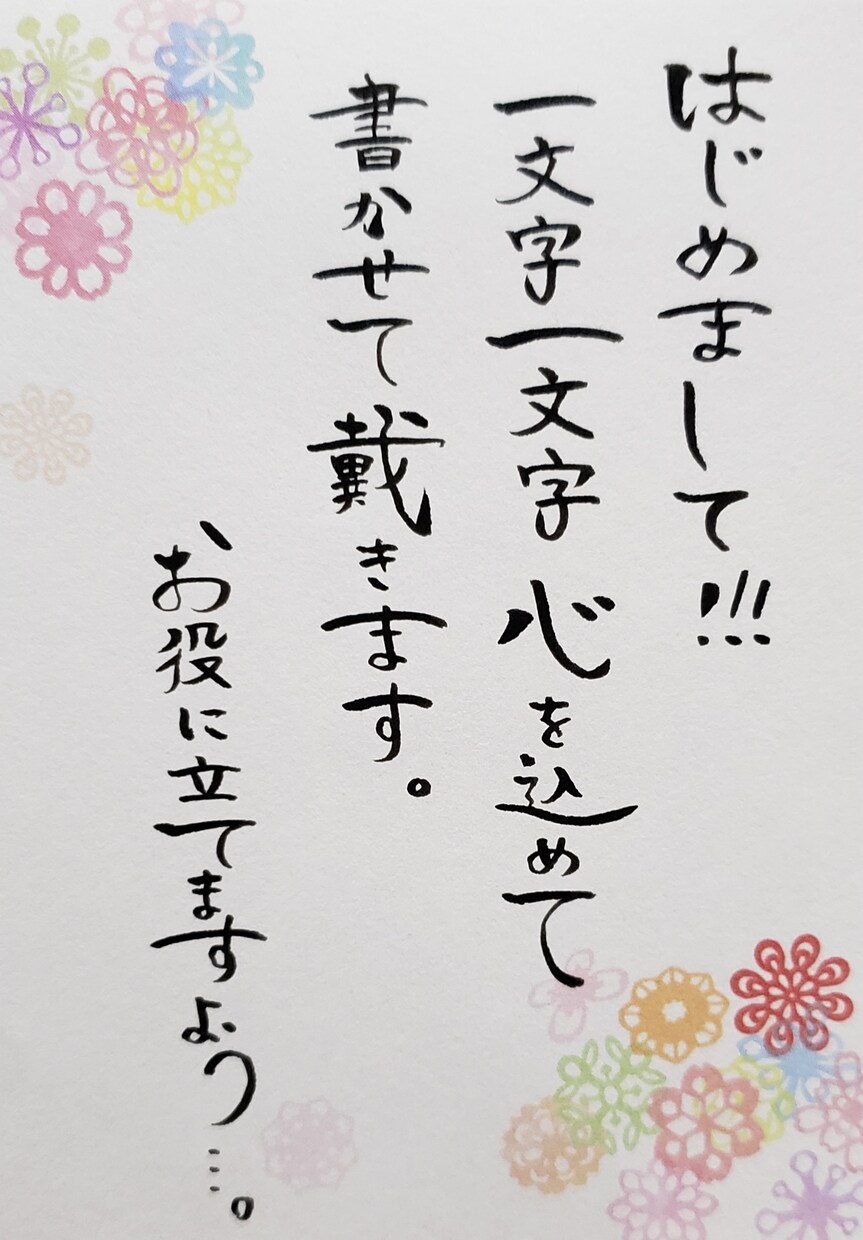 はじめまして!!!
一文字一文字 心を込めて
書かせて戴きます。
お役に立てますよう…。